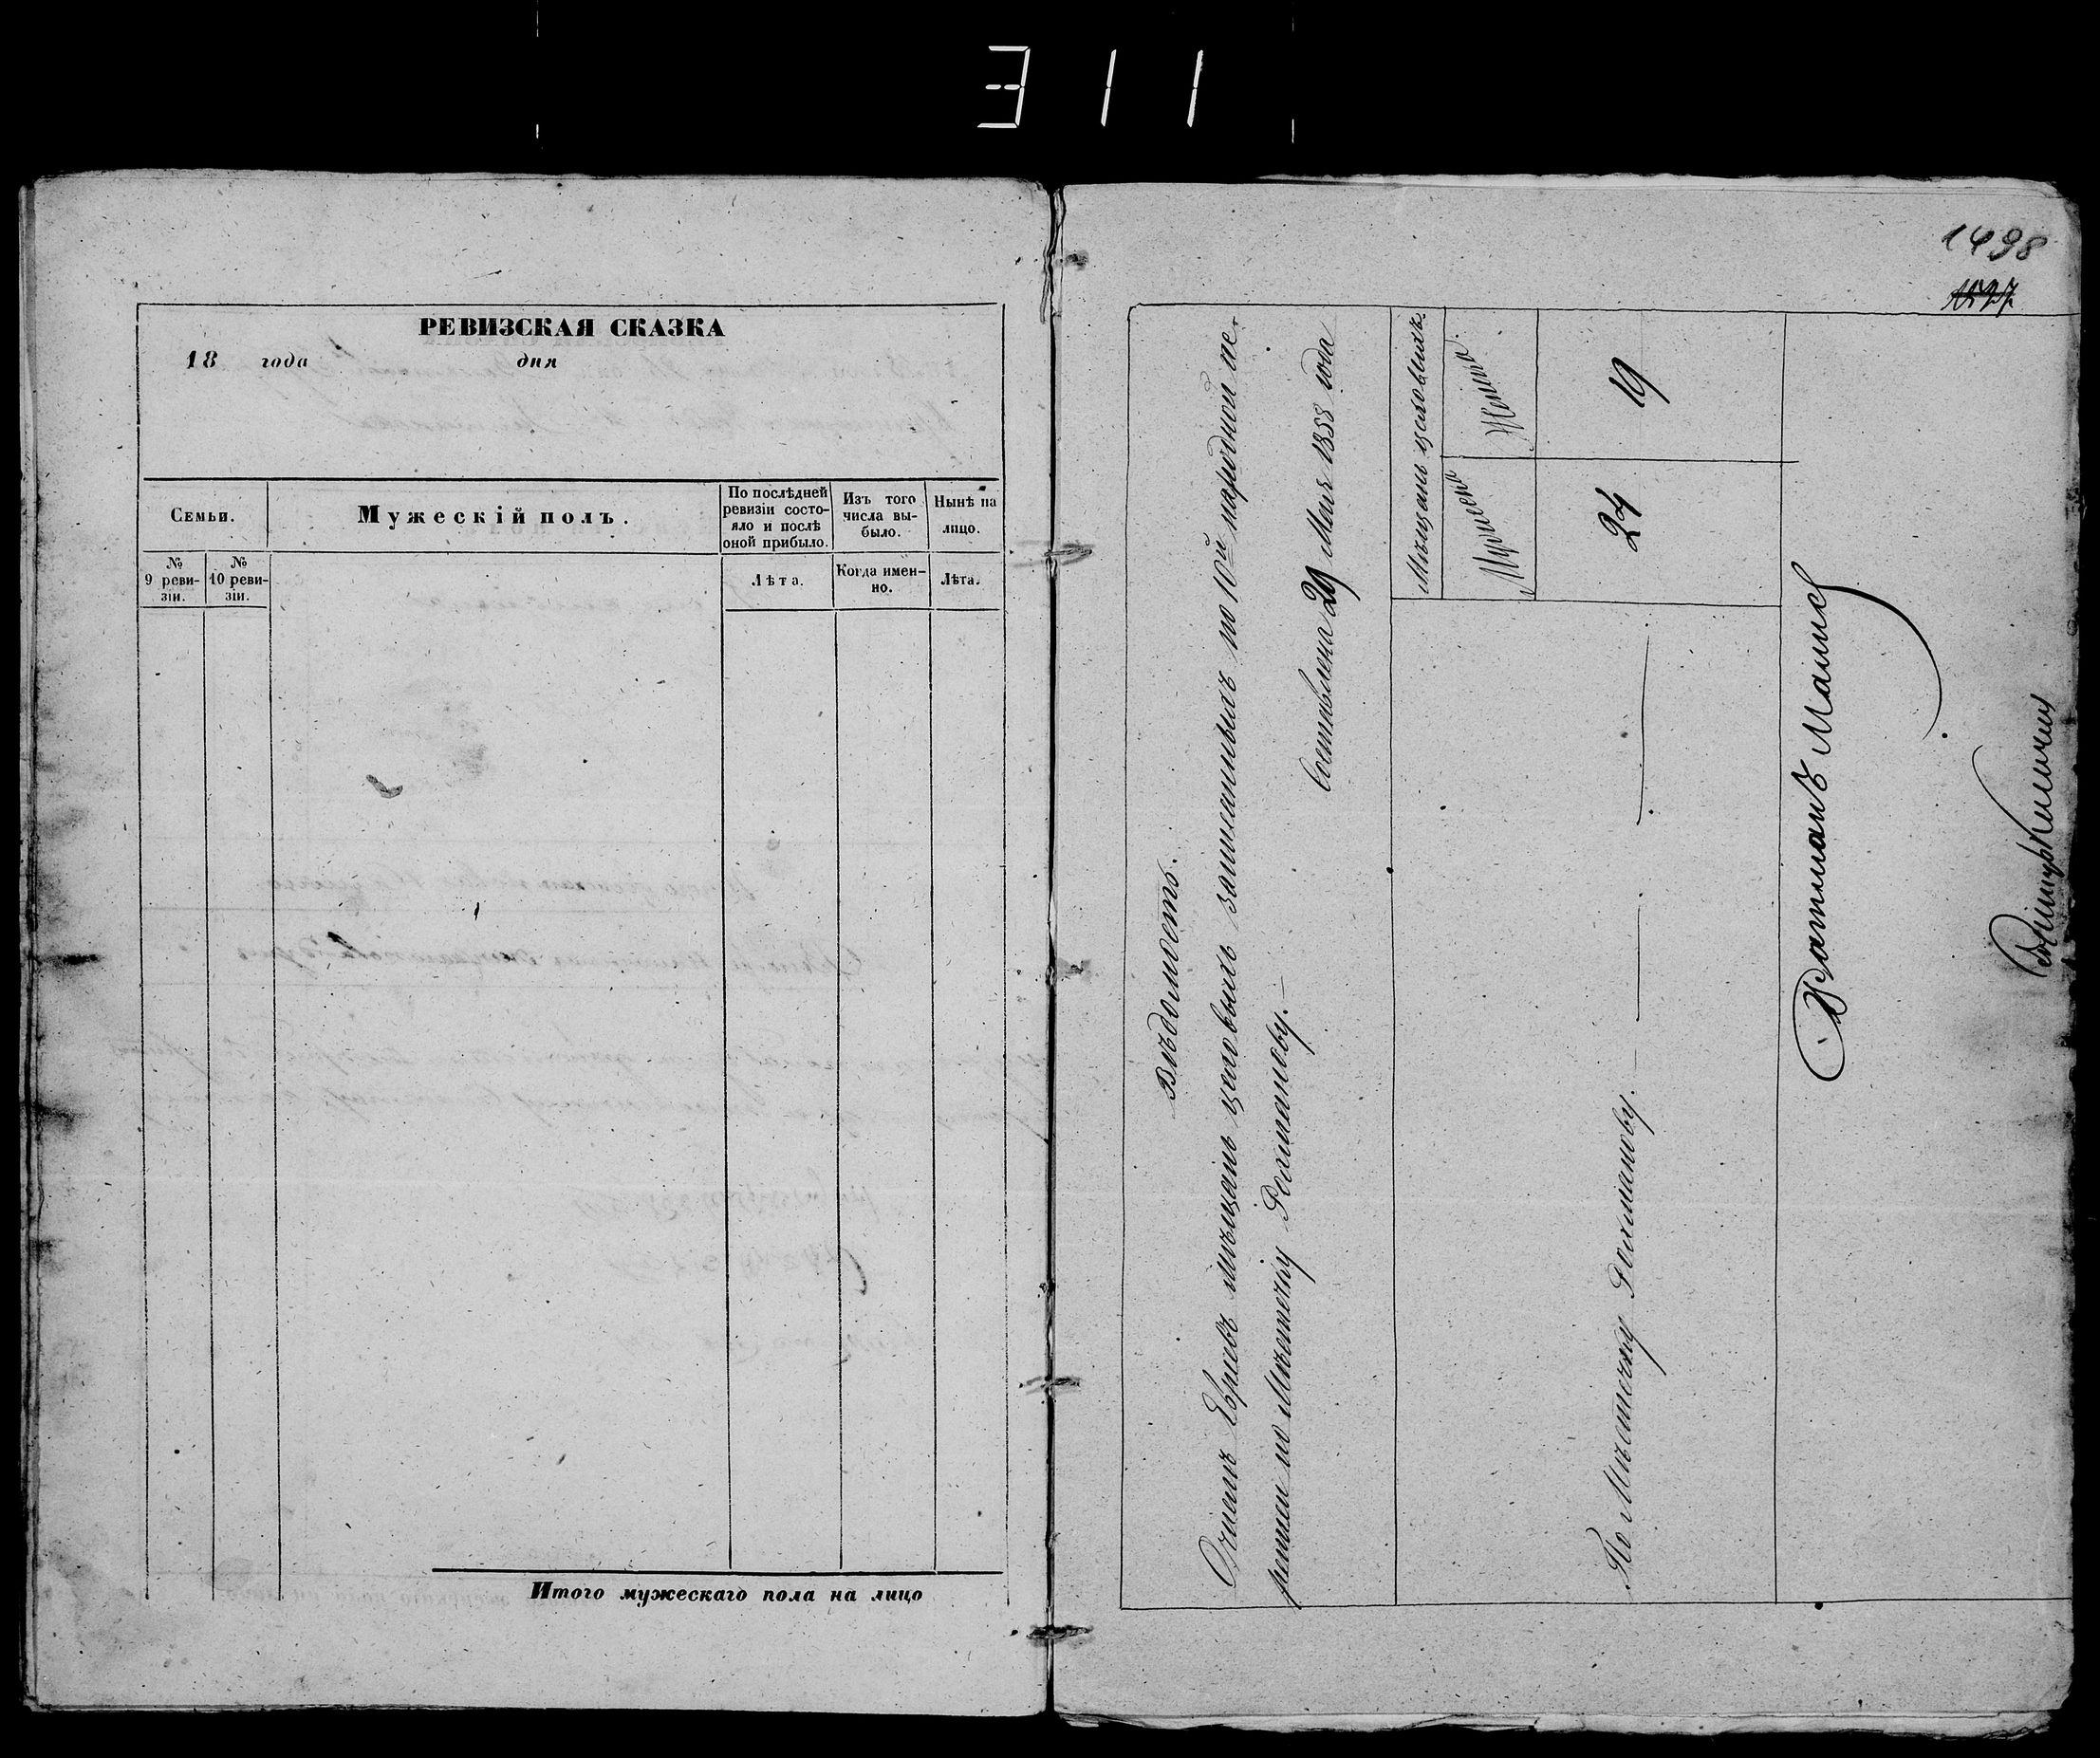 311
РЕВИЗСКАЯ СКАЗКА
18 года дня
Семьи.
Мужескій полъ.
По послѣдней ревизіи состо-
яло и послѣ
оной прибыло.
Изъ того
числа вы-
было.
Нынѣ на
лицо.
№
9 реви-
зіи.
№
10 реви-
зіи.
Лѣта.
Когда имен-
но.
Лѣта.
Итого мужескаго пола на лицо
1498
Вѣдомость.
О числѣ Евреевъ мѣщанъ цеховыхъ записанныхъ по 10й народной пе-
реписи по Мѣстечку Рохманову.
Составлена 29 Мая 1858 года
Мѣщанъ цеховыхъ.
Мужеска
Женска
По Мѣстечку Рохманову.
24
19
Ратманъ